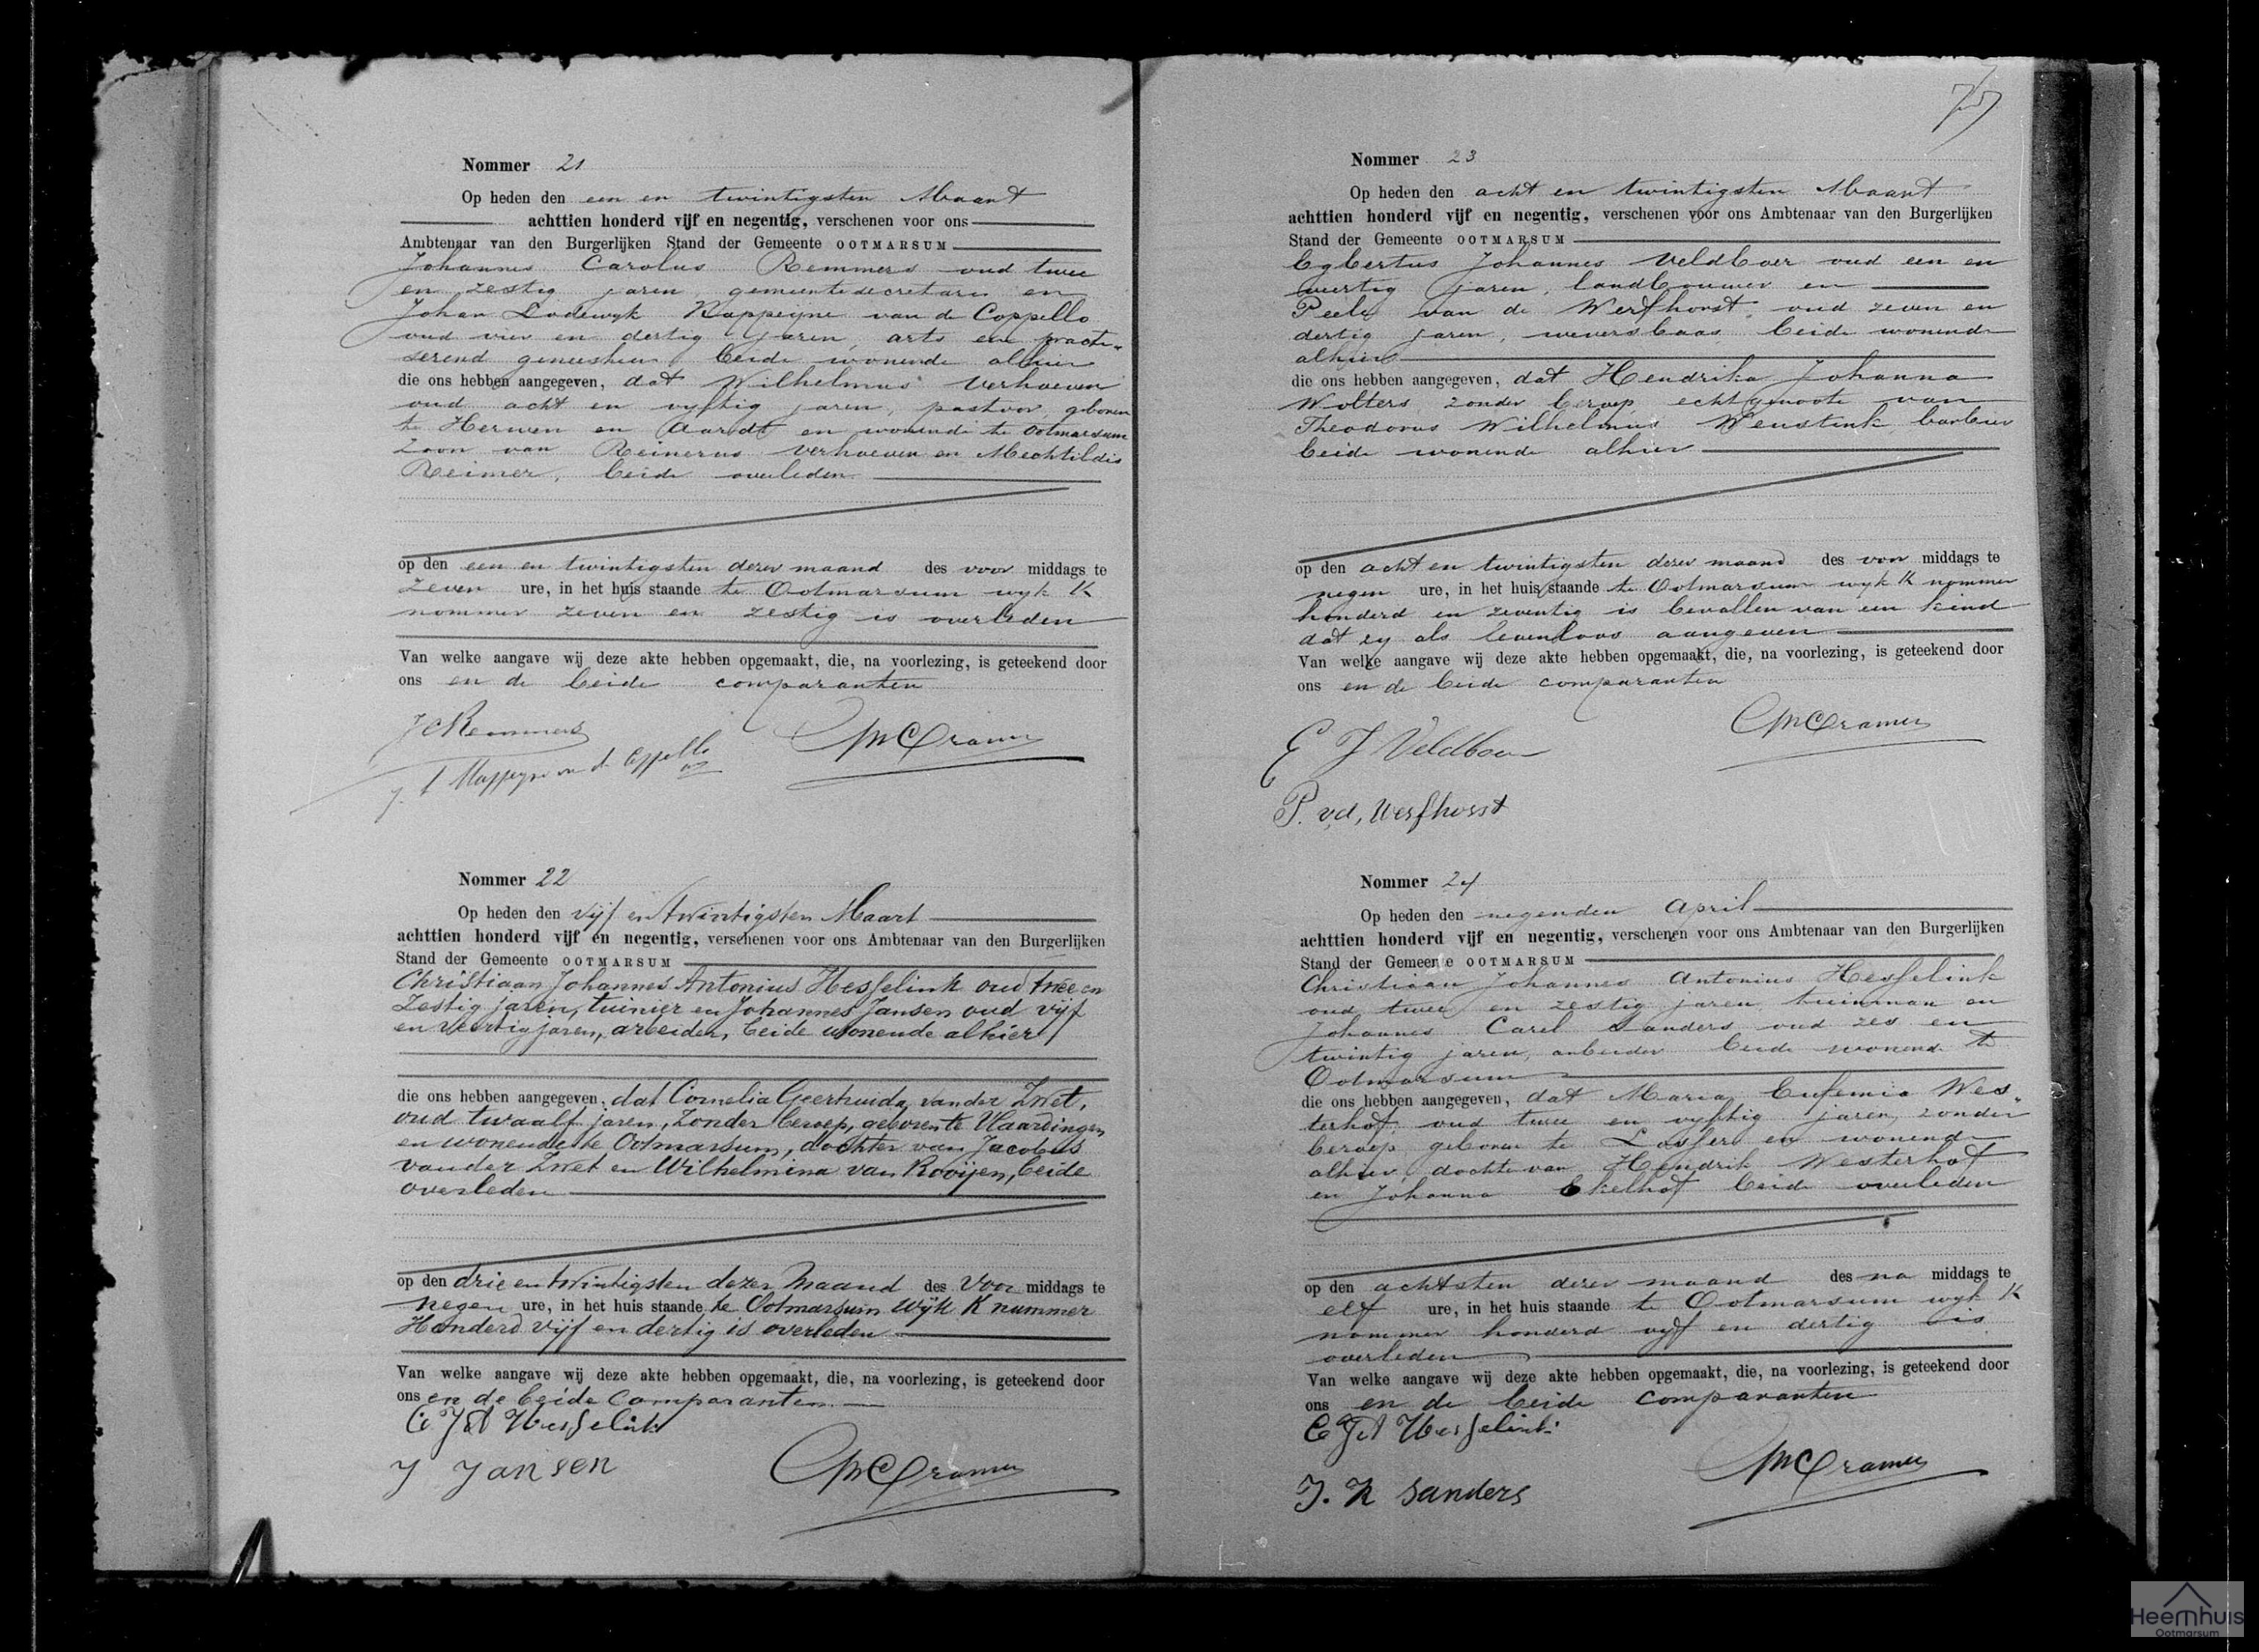 Nommer 21
Op heden den een en twintigsten Maart
achttien honderd vijf en negentig, verschenen voor ons
Ambtenaar van den Burgerlijken Stand der Gemeente OOTMARSUM
Johannes Carolus Remmers oud twee
en zestig jaren gemeentesecretaris en
Johan Lodewyk Kappeyne van de Coppello
oud vier en dertig jaren, arts en practi-
serend geneesheer, beide wonende alhier
die ons hebben aangegeven, dat Wilhelmus Verhoeven
oud acht en vyftig jaren, pastoor, geboren
te Herwen en Aardt en wonende te Ootmarsum
zoon van Reinerus Verhoeven en Mechtildis
Reimer, beide overleden
op den een en twintigsten dezer maand des voor middags te
zeven ure, in het huis staande te Ootmarsum wyk K
nommer zeven en zestig is overleden
Van welke aangave wij deze akte hebben opgemaakt, die, na voorlezing, is geteekend door
ons en de beide comparanten
JCRemmers
J. L Kappeyne van de Coppello
Cramer
Nommer 22
Op heden den vijf en twintigsten Maart
achttien honderd vijf en negentig, verschenen voor ons Ambtenaar van den Burgerlijken
Stand der Gemeente OOTMARSUM
Christiaan Johannes Antonius Hesselink oud twee en
Zestig jaren, tuinier en Johannes Jansen oud vijf
en veertig jaren, arbeider, beide wonende alhier
die ons hebben aangegeven, dat Cornelia Geertruida van der Zwet,
oud twaalf jaren, zonder beroep, geboren te Vlaardingen
en wonende te Ootmarsum, dochter van Jacobus
van der Zwet en Wilhelmina van Rooijen, beide
overleden
op den drie en twintigsten dezer maand des Voor middags te
negen ure, in het huis staande te Ootmarsum Wijk K nummer
Honderd vijf en dertig is overleden
Van welke aangave wij deze akte hebben opgemaakt, die, na voorlezing, is geteekend door
ons en de beide Comparanten
C JA Hesselink
J Jansen
Cramer
Nommer 23
Op heden den acht en twintigsten Maart
achttien honderd vijf en negentig, verschenen voor ons Ambtenaar van den Burgerlijken
Stand der Gemeente OOTMARSUM
Egbertus Johannes Veldboer oud een en
veertig jaren, landbouwer en
Peele van de Werfhorst, oud zeven en
dertig jaren, weversbaas, beide wonende
alhier
die ons hebben aangegeven, dat Hendrika Johanna
Wolters zonder beroep, echtgenoote van
Theodorus Wilhelmus Weustink barbier
beide wonende alhier
op den acht en twintigsten dezer maand des voor middags te
negen ure, in het huis staande te Ootmarsum wyk K nommer
honderd en zeventig is bevallen van een kind
dat zy als levenloos aangeven
Van welke aangave wij deze akte hebben opgemaakt, die, na voorlezing, is geteekend door
ons en de beide comparanten
E J Veldboer
Cramer
P. v.d. Werfhorst
Nommer 24
Op heden den negenden April
achttien honderd vijf en negentig, verschenen voor ons Ambtenaar van den Burgerlijken
Stand der Gemeente OOTMARSUM
Christiaan Johannes Antonius Hesselink
oud twee en zestig jaren tuinman en
Johannes Carel Sanders oud zes en
twintig jaren, arbeider beide wonende te
Ootmarsum
die ons hebben aangegeven, dat Maria Eufemia Wes-
terhof oud twee en vyftig jaren, zonder
beroep geboren te Losser en wonende
alhier, dochter van Hendrik Westerhof
en Johanna Ekelhof beide overleden
op den achtsten dezer maand des na middags te
elf ure, in het huis staande te Ootmarsum wyk K
nommer honderd vyf en dertig is
overleden
Van welke aangave wij deze akte hebben opgemaakt, die, na voorlezing, is geteekend door
ons en de beide comparanten
C JA Hesselink
J. K Sanders
Cramer
Heemhuis
Ootmarsum